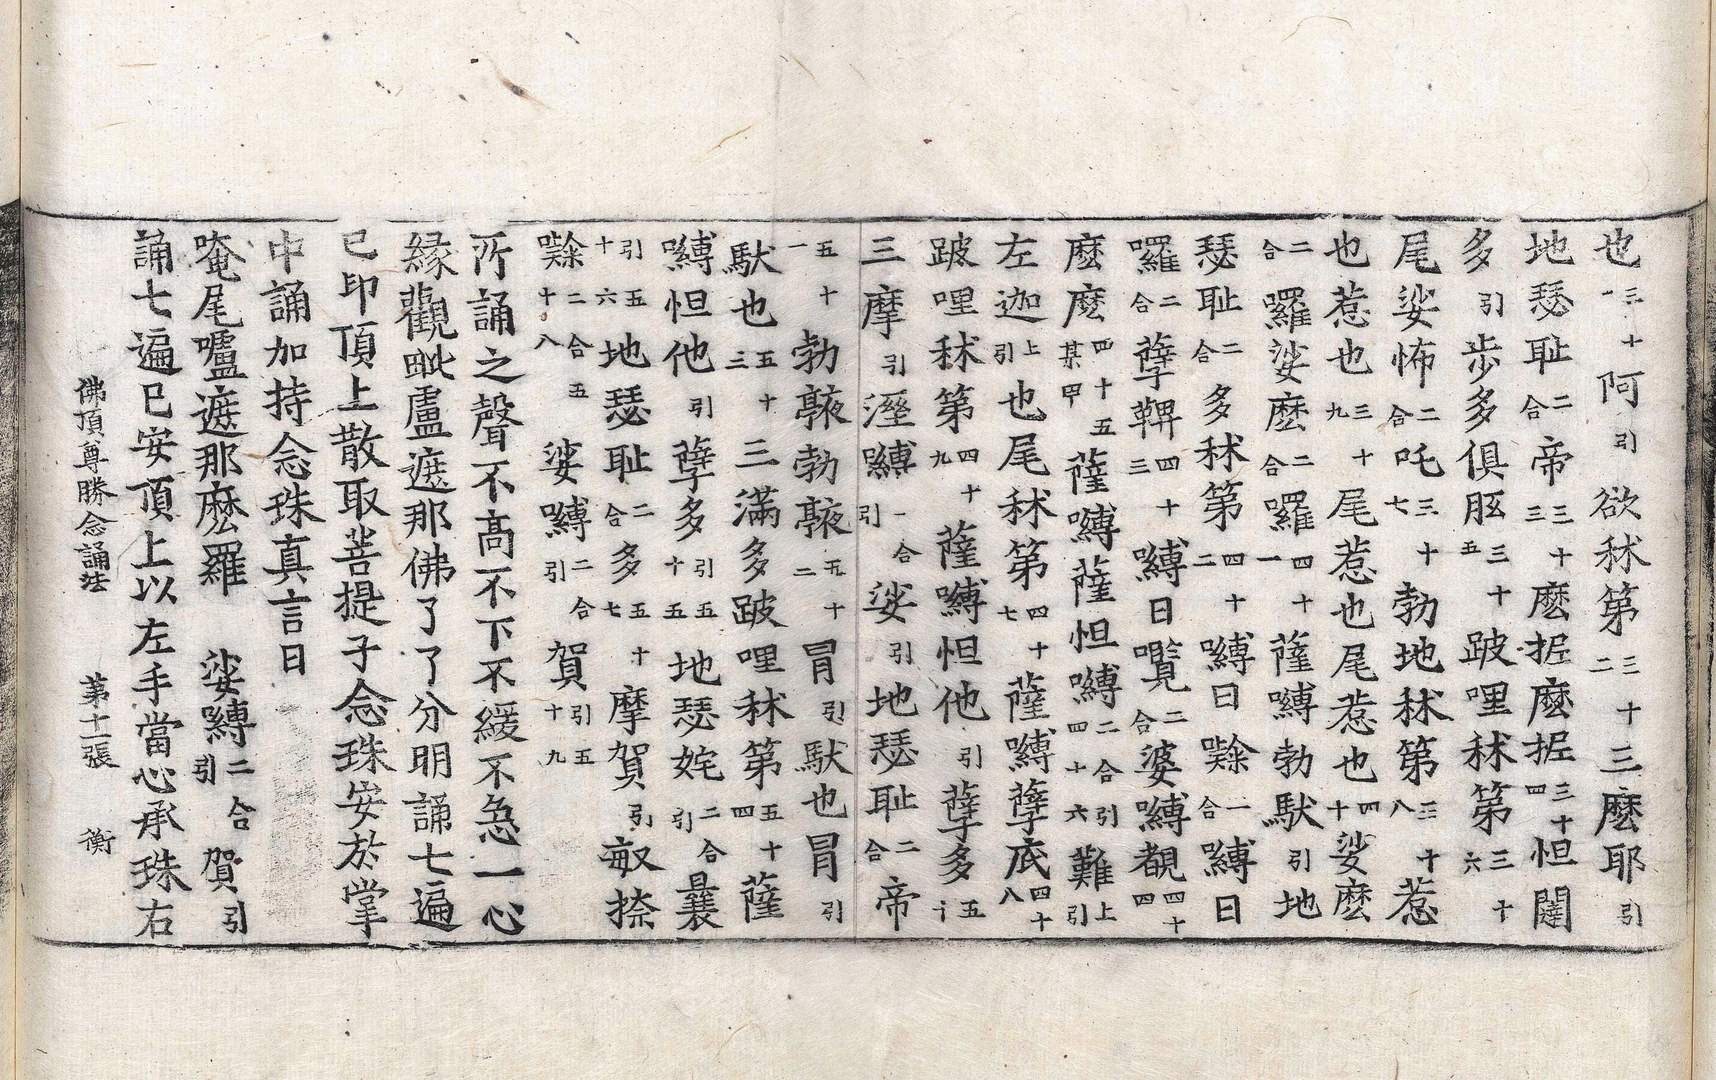 也三十一阿引欲秫第三十二三麼耶引
地瑟耻二合帝三十三麼抳麼抳三十四怛闥
多引步多俱胝三十五跛哩秫第三十六
尾娑怖二合吒三十七勃地秫第三十八惹
也惹也三十九尾惹也尾惹也四十娑麼
二合囉娑麼二合囉四十一薩嚩勃馱引地
瑟耻二合多秫第四十二嚩日㘑一合嚩日
囉二合孽鞞四十三嚩日㘕二合婆嚩覩四十四
麼麼四十五某甲薩嚩薩怛嚩二合引四十六難上引
左迦上引也尾秫第四十七薩嚩孽底四十八
跛哩秫第四十九薩嚩怛他引孽多五十
三摩引溼嚩一合引娑引地瑟耻二合帝
五十一勃𦤞勃𦤞五十二冒引馱也冒引
馱也五十三三滿多跛哩秫第五十四薩
嚩怛他引孽多引五十五地瑟姹二合引曩
引五十六地瑟耻二合多五十七摩賀引畝捺
㘑二合五十八娑嚩二合引賀引五十九
所誦之聲不高不下不緩不急一心
緣觀毗盧遮那佛了了分明誦七遍
已印頂上散取菩提子念珠安於掌
中誦加持念珠真言曰
唵尾嚧遮那麼羅娑嚩二合引賀引
誦七遍已安頂上以左手當心承珠右
佛頂尊勝念誦法 第十一張 衡